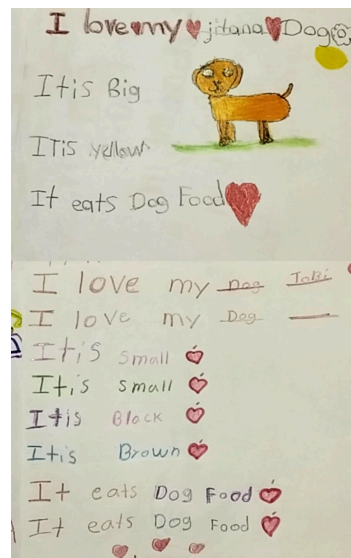 I love my jitana Dog
It is Big
ITis yellow
It eats Dog Food
I love my Dog Tobi
I love my Dog
It is small
It is small
It is Black
It is Brown
It eats Dog Food
It eats Dog Food